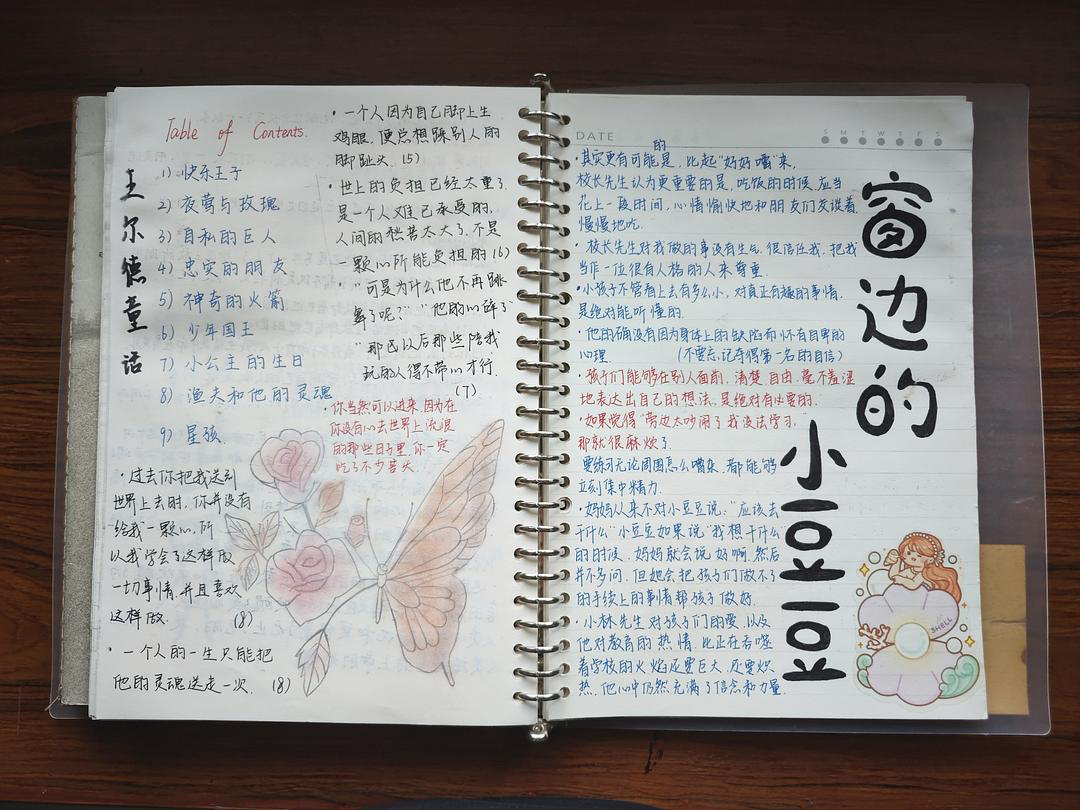 Table of Contents.
王尔德童话
1) 快乐王子
2) 夜莺与玫瑰
3) 自私的巨人
4) 忠实的朋友
5) 神奇的火箭
6) 少年国王
7) 小公主的生日
8) 渔夫和他的灵魂
9) 星孩
·过去你把我送到
世界上去时,你并没有
给我一颗心,所
以我学会了这样做
一切事情,并且喜欢
这样做. (8)
·一个人的一生只能把
他的灵魂送走一次. (8)
·一个人因为自己脚上生
鸡眼,便总想踩别人的
脚趾头. (5)
·世上的负担已经太重了.
是一个人难已承受的,
人间的愁苦太大了.不是
一颗心所能负担的 (6)
·"可是为什么他不再跳
舞了呢?" "他的心碎了"
"那已以后那些陪我
玩的人得不带心才行.
(7)
·你当然可以进来,因为在
你没有心去世界上流浪
的那些日子里,你一定
吃了不少苦头.
DATE
S M T W T F S
的
·其实更有可能是,比起"好好嚼"来,
校长先生认为更重要的是,吃饭的时候,应当
花上一段时间,心情愉快地和朋友们交谈着,
慢慢地吃.
·校长先生对我做的事没有生气,很信任我,把我
当作一位很有人格的人来尊重.
·小孩子不管看上去有多么小,对真正有趣的事情,
是绝对能听懂的.
·他的确没有因为身体上的缺陷而怀有自卑的
心理. (不要忘记夺得第一名的自信)
·孩子们能够在别人面前,清楚、自由、毫不羞涩
地表达出自己的想法,是绝对有必要的.
·如果觉得"旁边太吵闹了我没法学习",
那就很麻烦了.
要练习无论周围怎么嘈杂,都能够
立刻集中精力.
·妈妈从来不对小豆豆说:"应该去
干什么"小豆豆如果说"我想干什么"
的时候,妈妈就会说好啊,然后
并不多问,但她会把孩子们做不了
的手续上的事情帮孩子做好.
·小林先生对孩子们的爱,以及
他对教育的热情,比正在吞噬
着学校的火焰还要巨大,还要炽
热,他心中仍然充满了信念和力量.
窗边的
小
KOI KOI
SHELL